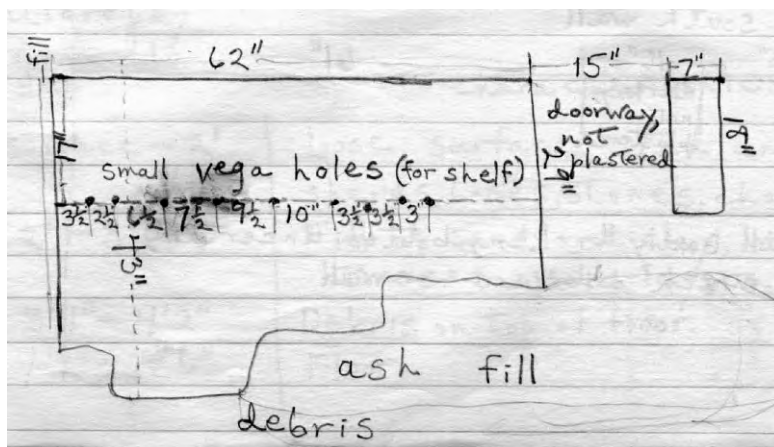 fill
62"
15"
7"
doorway,
not
plastered
18"
17"
small vega holes (for shelf)
3½ 2½ 6½ 7½ 9½ 10" 3½ 3½ 3"
43"
ash fill
debris